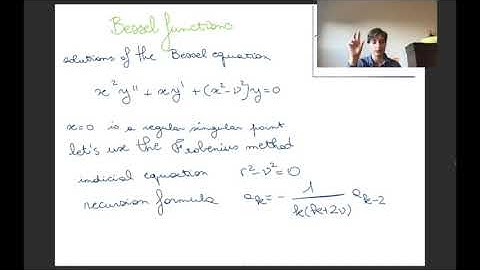 Bessel functions
solutions of the Bessel equation
x²y'' + xy' + (x²-ν²)y=0
x=0 is a regular singular point
let's use the Frobenius method
indicial equation r²-ν²=0
recursion formula a_k = - 1/(k(k+2ν)) a_{k-2}